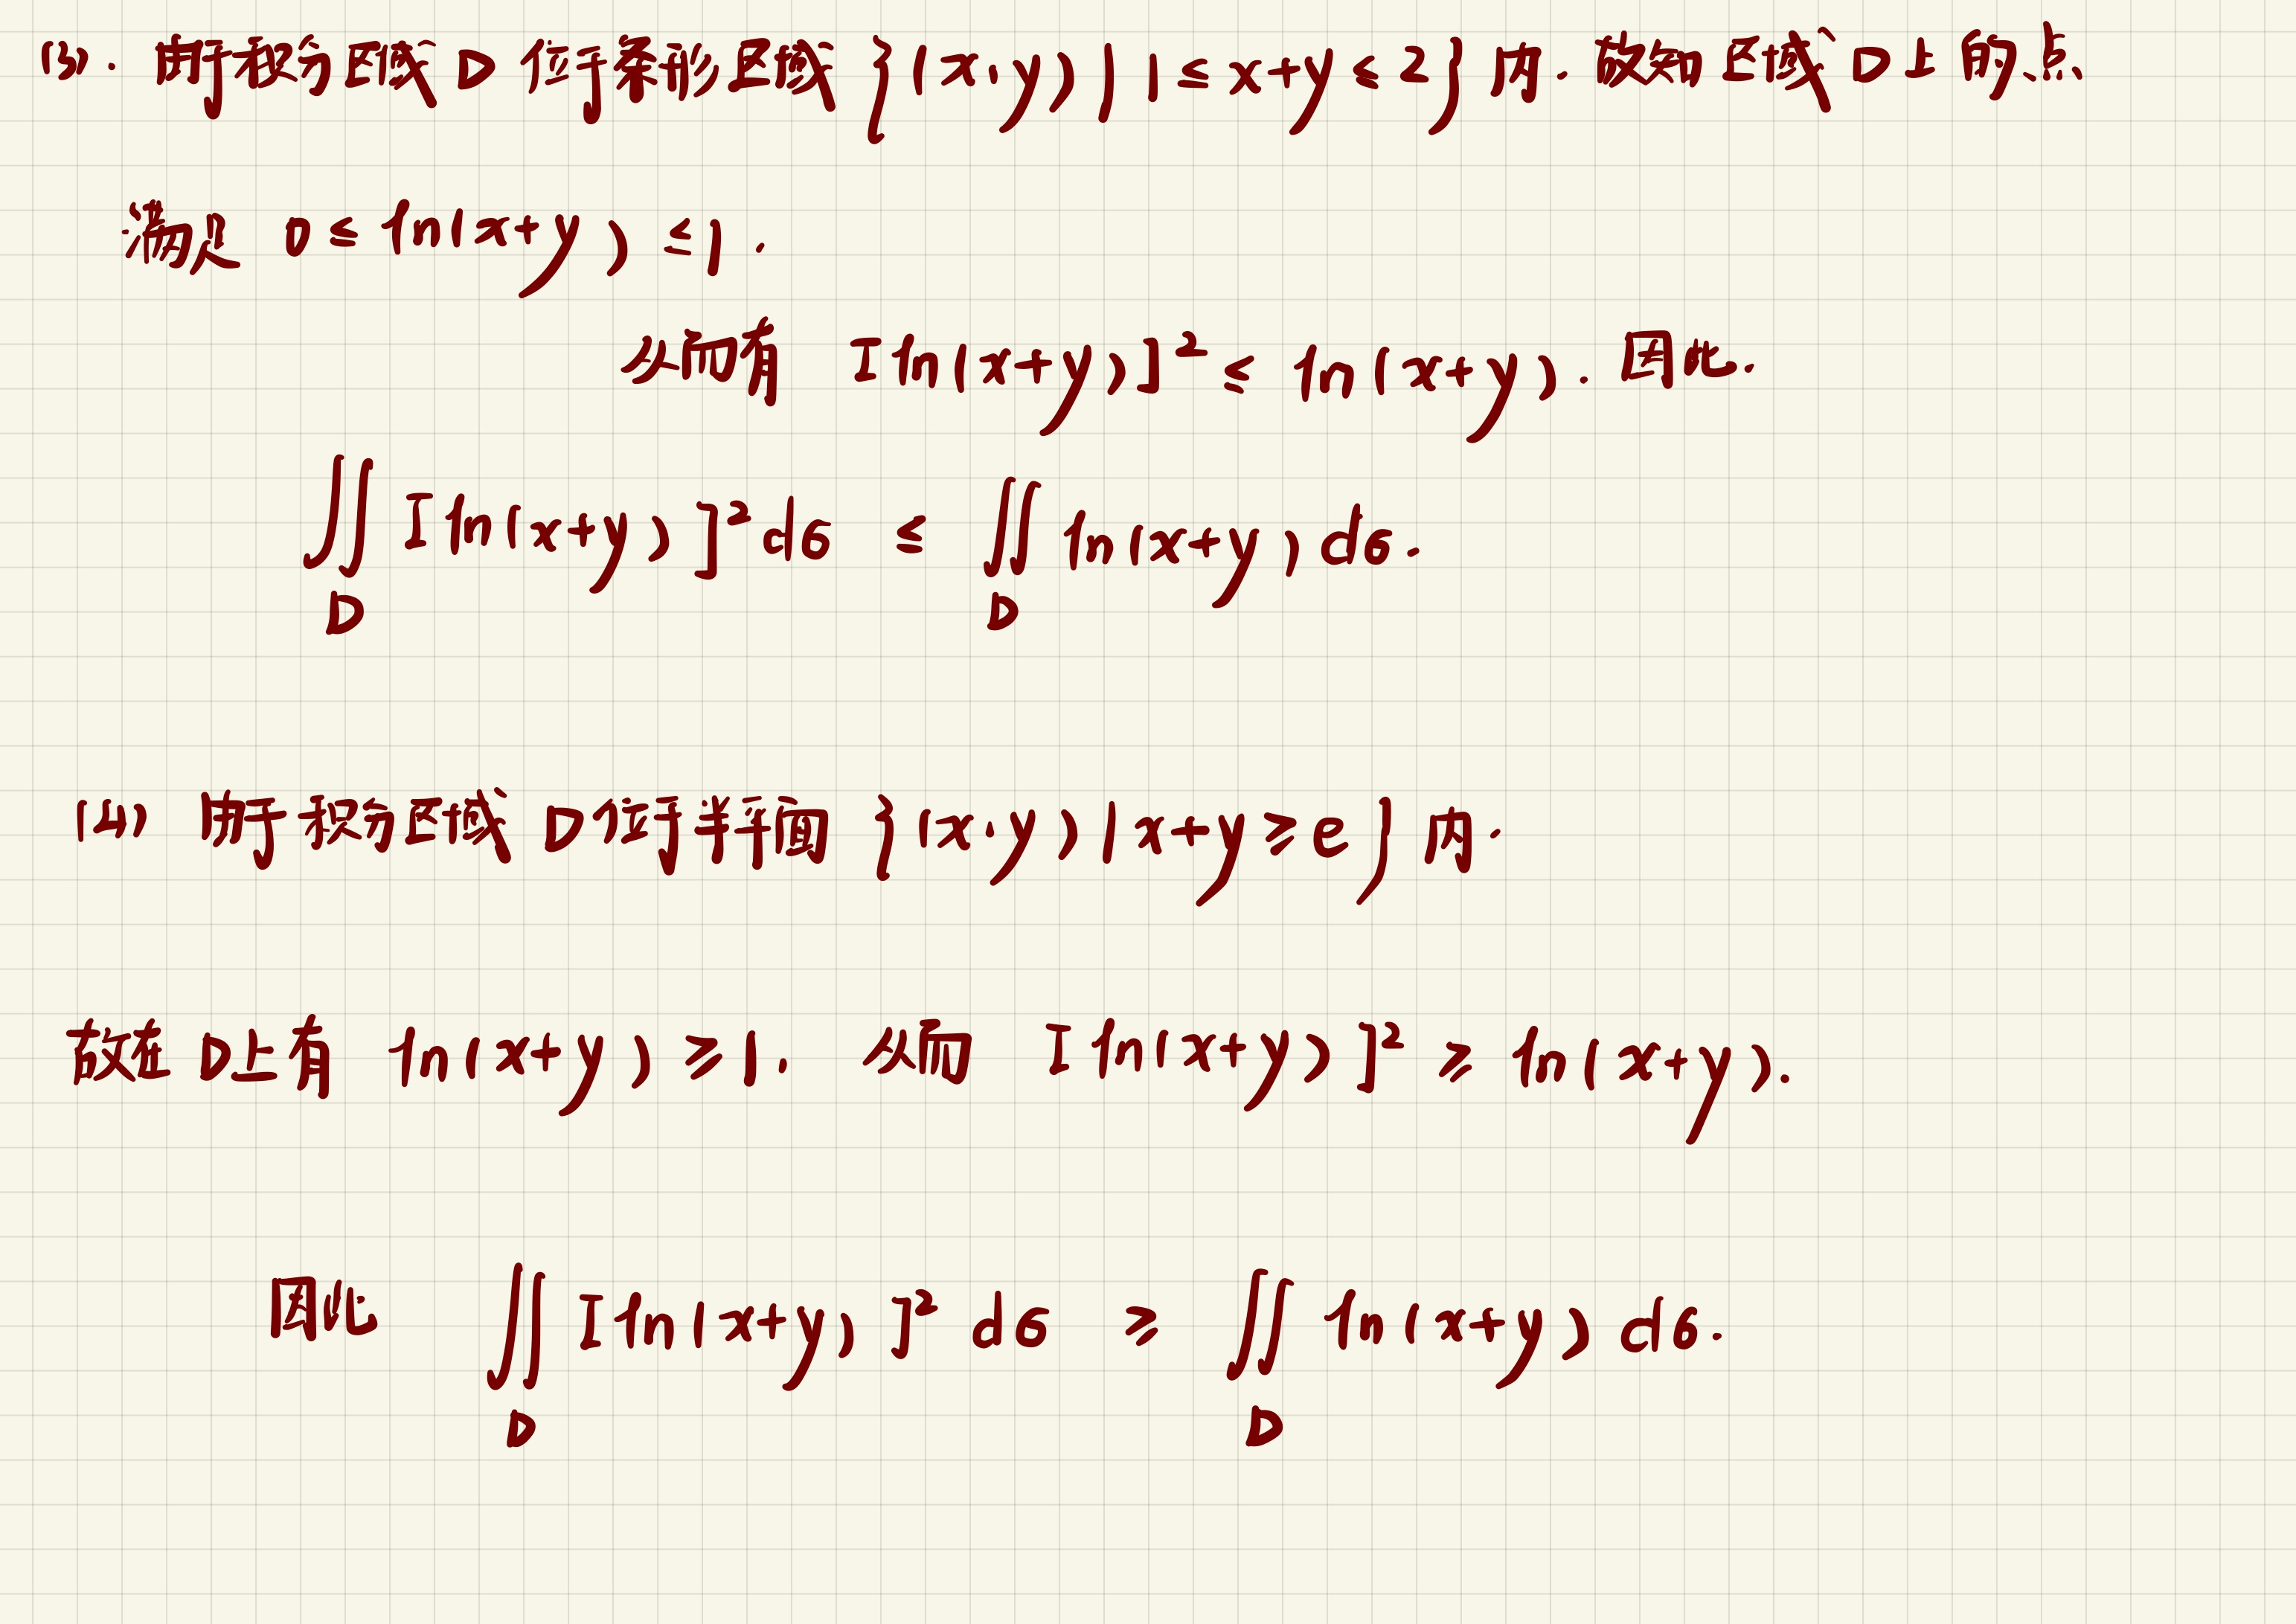 (3). 由于积分区域 D 位于条形区域 {(x,y)|1≤x+y≤2}内. 故知区域 D 上的点.
满足 0≤ ln(x+y) ≤1.
从而有 [ln(x+y)]² ≤ ln(x+y). 因此.
∬ [ln(x+y)]²dσ ≤ ∬ ln(x+y)dσ.
D D
(4) 由于积分区域 D位于半平面 {(x,y)|x+y≥e}内.
故在 D上有 ln(x+y) ≥1, 从而 [ln(x+y)]² ≥ ln(x+y).
因此 ∬ [ln(x+y)]² dσ ≥ ∬ ln(x+y) dσ.
D D